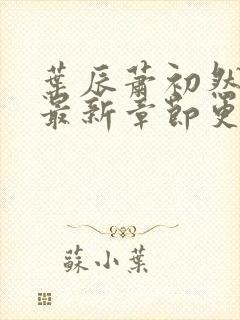 葉辰蕭初然
最新章節更
蘇小葉